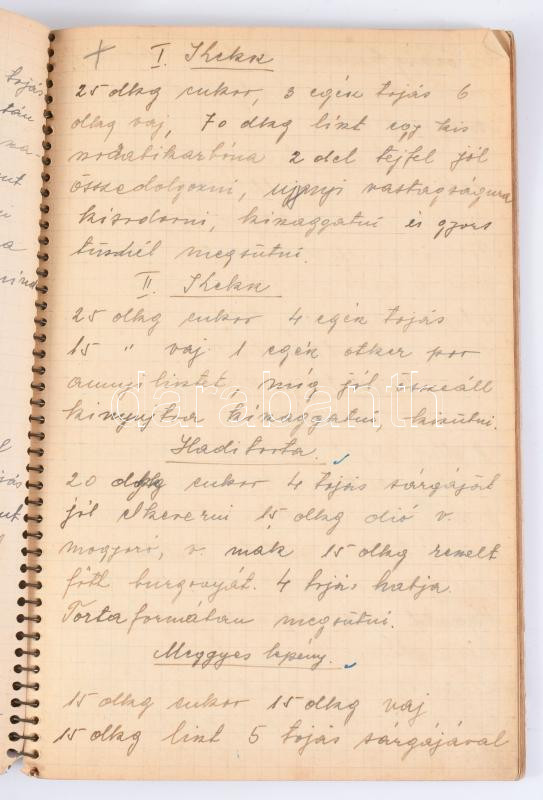 I. Kekx
25 dkg cukor, 3 egész tojás 6
dkg vaj, 70 dkg liszt egy kis
2 del tejfel jól
összedolgozni, ujjnyi vastagságura
kisodorni, kiszaggatni és gyors
tüznél megsütni.
II. Kekx
25 dkg cukor 4 egész tojás
15 " vaj 1 egész otker por
annyi lisztet, míg jól összeáll
kinyujtva kiszaggatni, kisütni.
Hadi torta.
20 dkg cukor 4 tojás sárgáját
jól elkeverni 15 dkg dió v.
mogyoró, v. mák 15 dkg reszelt
főtt burgonyát. 4 tojás habja.
Torta formában megsütni.
Meggyes lepény.
15 dkg cukor 15 dkg vaj
15 dkg liszt 5 tojás sárgájával
darabanth
tojás